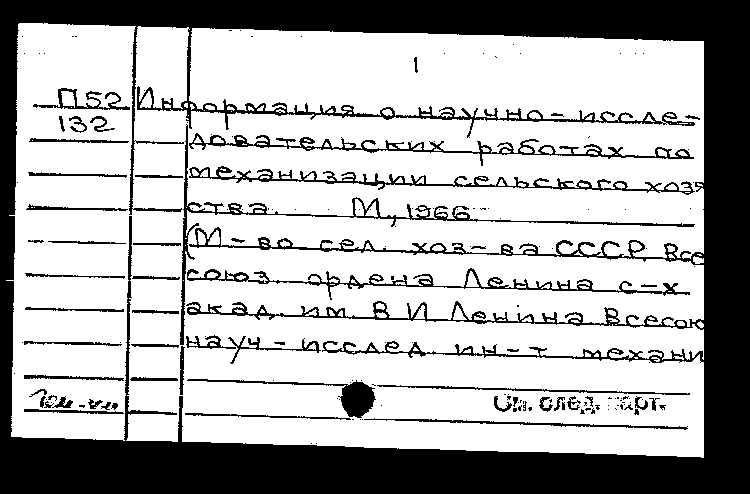 1
П52 Информация о научно-иссле-
132 довательских работах по
механизации сельского хозя
ства. М., 1966.
(М-во сел. хоз-ва СССР. Все
союз. ордена Ленина с-х
акад. им. В И Ленина Всесою
науч-исслед. ин-т механи
См. след. карт.